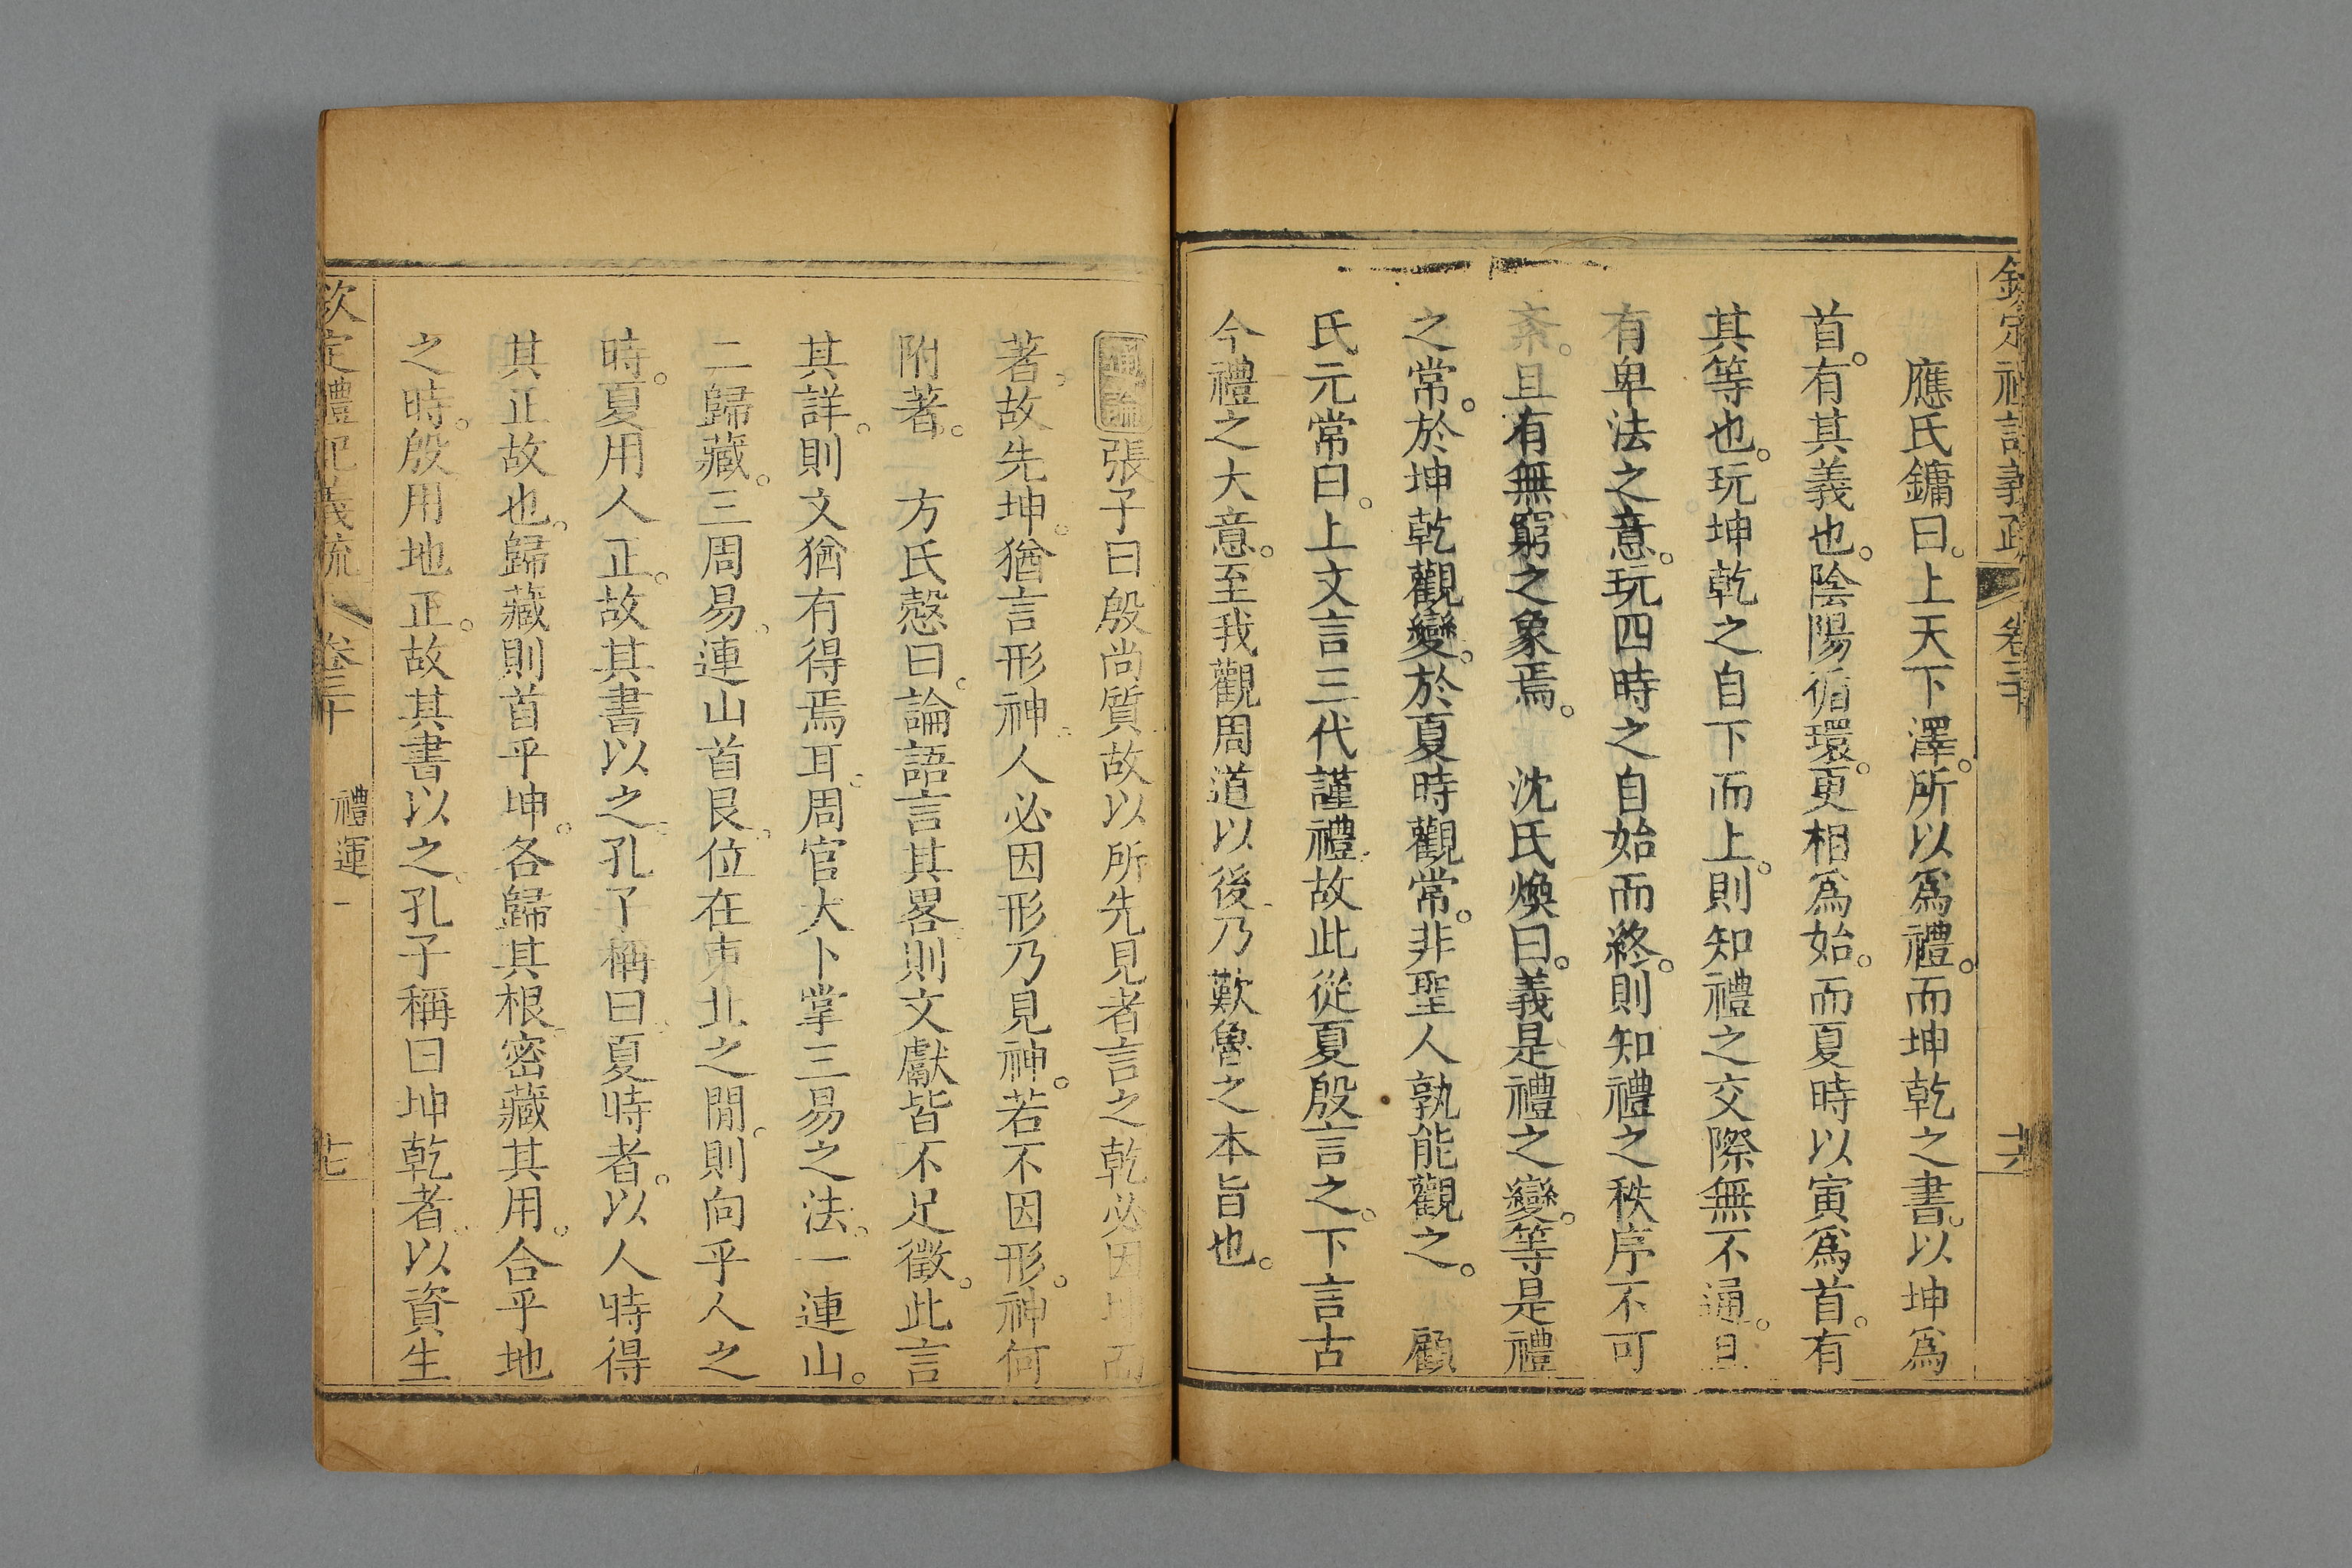 欽定禮記義疏 卷三十 六
應氏鏞曰。上天下澤。所以爲禮。而坤乾之書。以坤爲
首。有其義也。陰陽循環。更相爲始。而夏時以寅爲首。有
其等也。玩坤乾之自下而上。則知禮之交際無不通。且
有卑法之意。玩四時之自始而終。則知禮之秩序不可
紊。且有無窮之象焉。 沈氏煥曰。義是禮之變。等是禮
之常。於坤乾觀變。於夏時觀常。非聖人孰能觀之。 顧
氏元常曰。上文言三代謹禮。故此從夏殷言之。下言古
今禮之大意。至我觀周道以後。乃歎魯之本旨也。
通論張子曰殷尚質故以所先見者言之乾必因坤而
著。故先坤。猶言形神。人必因形乃見神。若不因形。神何
附著。 方氏慤曰。論語言其畧。則文獻皆不足徵。此言
其詳。則文猶有得焉耳。周官大卜掌三易之法。一連山。
二歸藏。三周易。連山首艮。位在東北之閒。則向乎人之
時。夏用人正。故其書以之。孔子稱曰。夏時者。以人時得
其正故也。歸藏則首乎坤。各歸其根。密藏其用。合乎地
之時。殷用地正。故其書以之。孔子稱曰坤乾者。以資生
欽定禮記義疏 卷三十 禮運 一 七